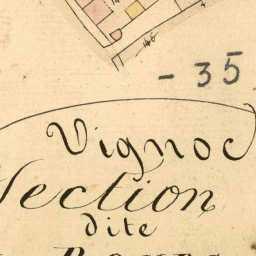 146
- 35
Vignoc
Section
dite